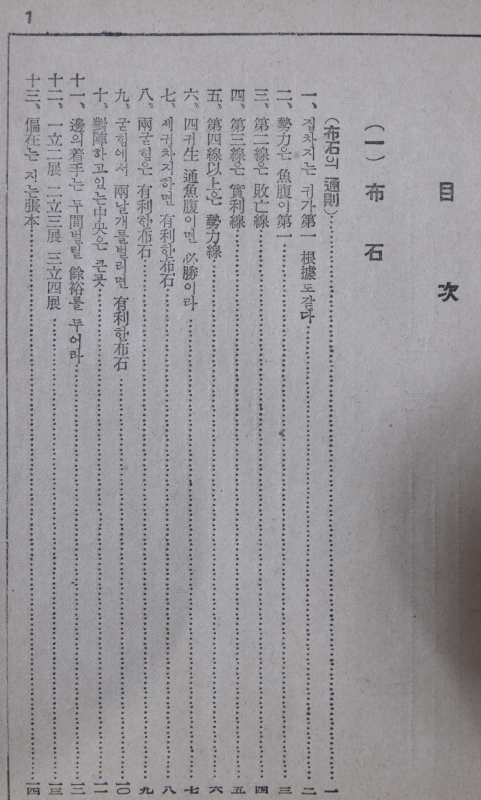 1
目次
(一) 布石
(布石의 通則)……一
一、집차지는 귀가第一 根據도같다……二
二、勢力은 魚腹이第一……三
三、第二線은 敗亡線……四
四、第三線은 實利線……五
五、第四線以上은 勢力線……六
六、四귀生 通魚腹이면 必勝이라……七
七、세귀차지하면 有利한布石……八
八、兩굳힘은 有利한布石……九
九、굳힘에서 兩날개를벌리면 有利한布石……一〇
十、對陣하고있는中央은 큰곳……一一
十一、邊의着手는 두間벌릴 餘裕를 두어라……一二
十二、一立二展 二立三展 三立四展……一三
十三、偏在는 지는張本……一四